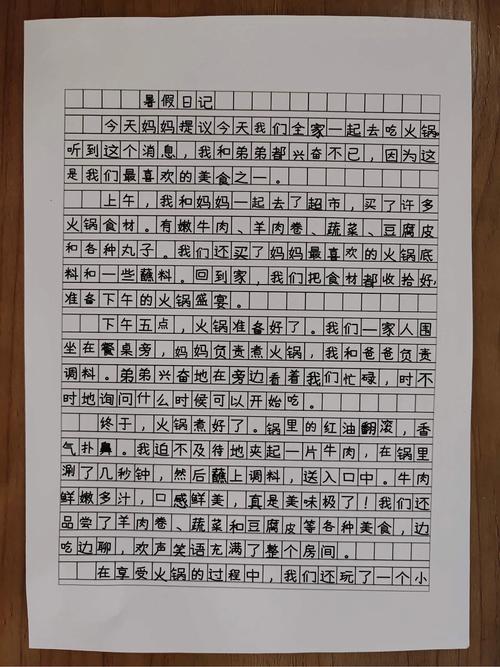 暑假日记
今天妈妈提议今天我们全家一起去吃火锅。
听到这个消息，我和弟弟都兴奋不已，因为这
是我们最喜欢的美食之一。
上午，我和妈妈一起去了超市，买了许多
火锅食材。有嫩牛肉、羊肉卷、蔬菜、豆腐皮
和各种丸子。我们还买了妈妈最喜欢的火锅底
料和一些蘸料。回到家，我们把食材都收拾好，
准备下午的火锅盛宴。
下午五点，火锅准备好了。我们一家人围
坐在餐桌旁，妈妈负责煮火锅，我和爸爸负责
调料。弟弟兴奋地在旁边看着我们忙碌，时不
时地询问什么时候可以开始吃。
终于，火锅煮好了。锅里的红油翻滚，香
气扑鼻。我迫不及待地夹起一片牛肉，在锅里
涮了几秒钟，然后蘸上调料，送入口中。牛肉
鲜嫩多汁，口感鲜美，真是美味极了！我们还
品尝了羊肉卷、蔬菜和豆腐皮等各种美食，边
吃边聊，欢声笑语充满了整个房间。
在享受火锅的过程中，我们还玩了一个小